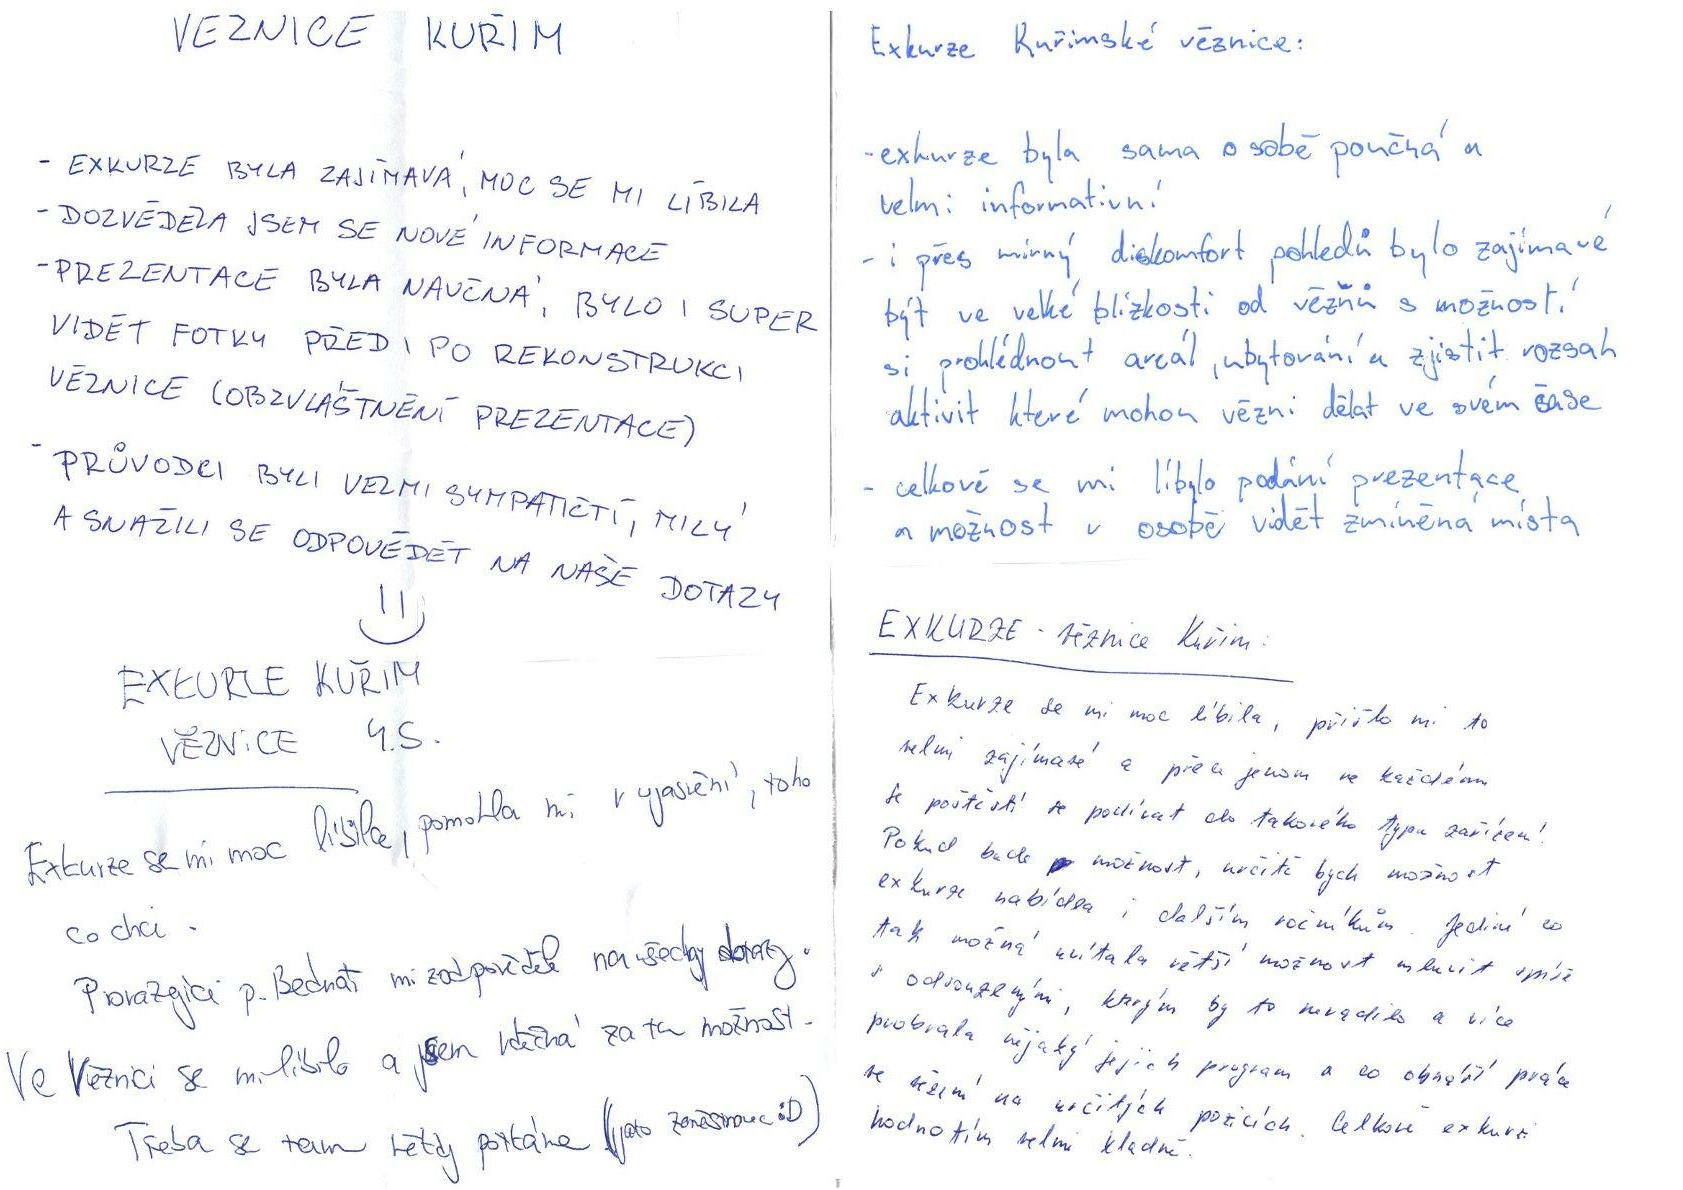 VĚZNICE KUŘIM
- EXKURZE BYLA ZAJÍMAVÁ, MOC SE MI LÍBILA
- DOZVĚDĚLA JSEM SE NOVÉ INFORMACE
- PREZENTACE BYLA NAUČNÁ, BYLO I SUPER
VIDĚT FOTKY PŘED I PO REKONSTRUKCI
VĚZNICE (OBZVLÁŠTNĚNÍ PREZENTACE)
- PRŮVODCI BYLI VELMI SYMPATIČTÍ, MILÝ
A SNAŽILI SE ODPOVĚDĚT NA NAŠE DOTAZY
EXKURZE KUŘIM
VĚZNICE 4.S.
Exkurze se mi moc líbila, pomohla mi v ujasnění, toho
co chci.
p. Bednář mi zodpověděl na všechy dotazy.
Ve Věznici se mi líbilo a jsem vděčná za tu možnost.
Třeba se tam někdy potkáme (jako zaměstnanec :D)
Exkurze Kuřimské věznice:
- exkurze byla sama o sobě poučná a
velmi informativní
- i přes mírný diskomfort pohledů bylo zajímavé
být ve velké blízkosti od vězňů s možností
si prohlédnout areál, ubytování a zjistit rozsah
aktivit které mohou vězni dělat ve svém čase
- celkově se mi líbylo podání prezentace
a možnost v osobě vidět zmíněná místa
EXKURZE - věznice Kuřim:
Exkurze se mi moc líbila, přišlo mi to
velmi zajímavé a přeci jenom ne každému
se poštěstí se podívat do takového typu zařízení.
Pokud bude možnost, určitě bych možnost
exkurze nabídla i dalším ročníkům. Jediné co
tak možná uvítala větší možnost mluvit spíše
s odsouzenými, kterým by to nevadilo a více
probrala nějaký jejich program a co obnáší práce
ve vězení na určitých pozicích. Celkově exkurzi
hodnotím velmi kladně.